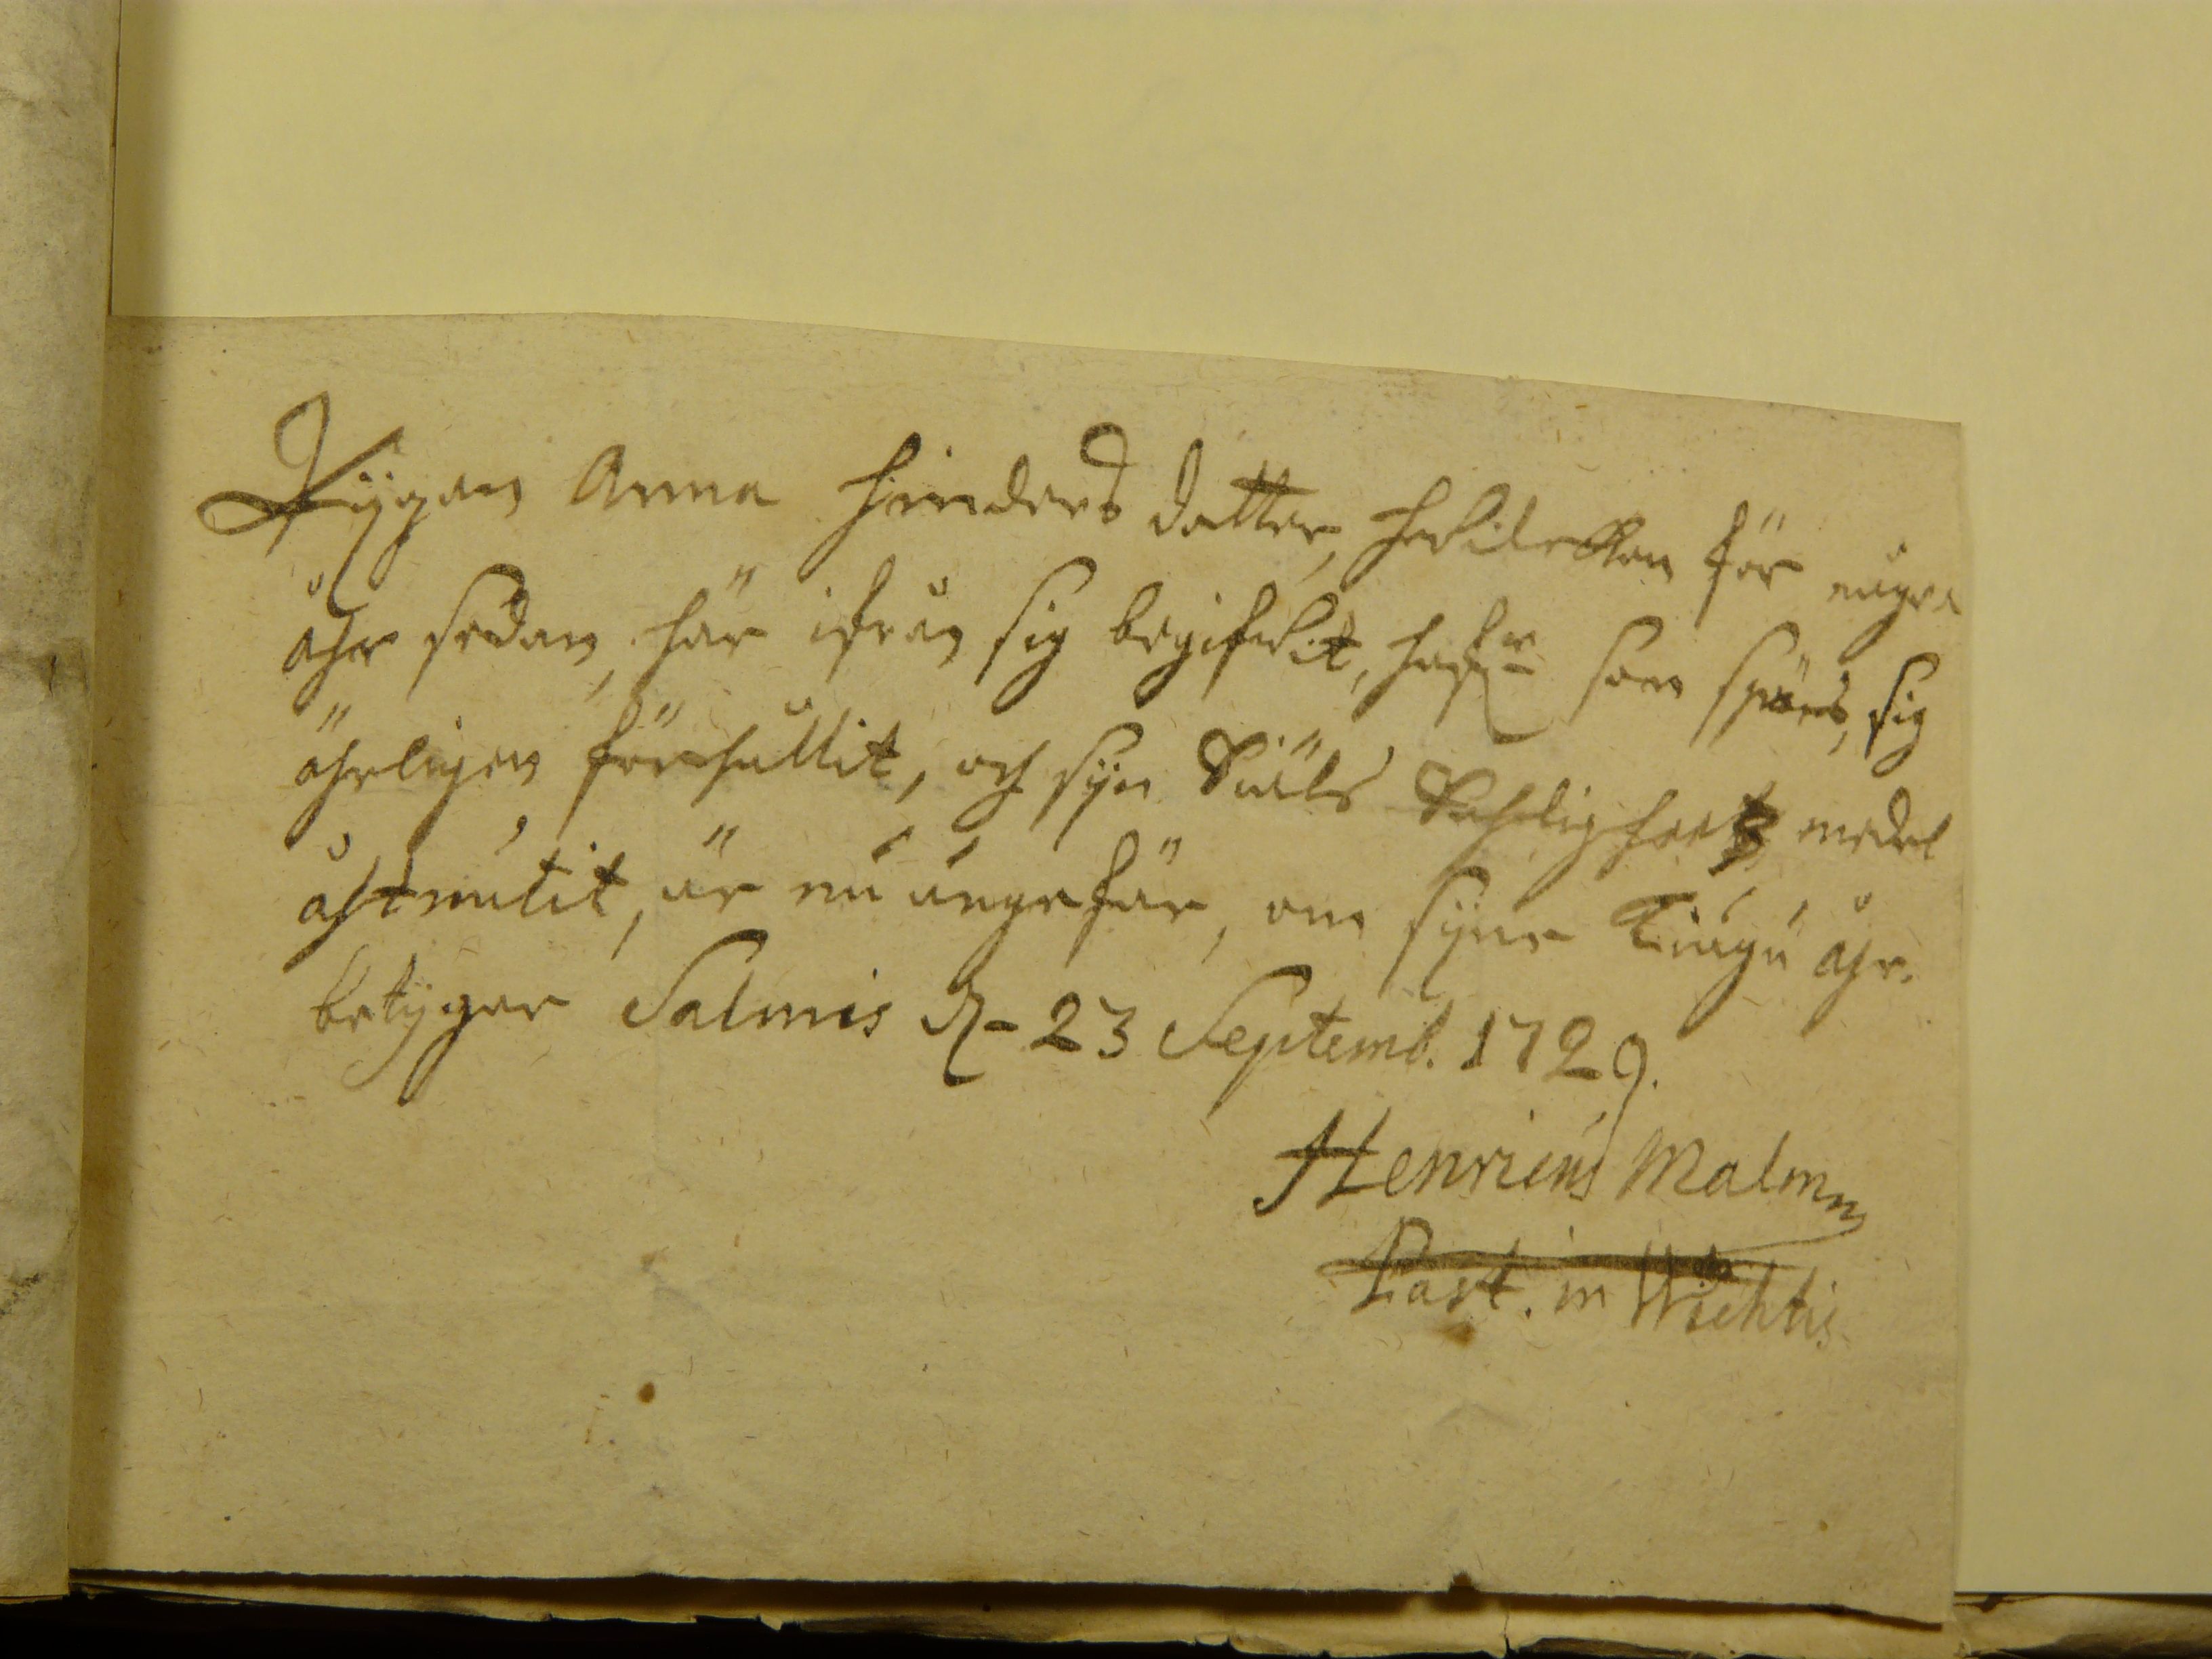 Pijgan Anna Hinders dotter, hwilcken för någre
åhr sedan, här ifrån sig begifwit, hafr som spörs, sig
ährligen förehållit, och sijn Siäls Sahligheetz medel
åtniutit, är nu ungefär, om sijne Tiugu åhr.
betijgar Salmis d. 23 Septemb. 1729.
Henricus Malmn
Past. in Wichtis